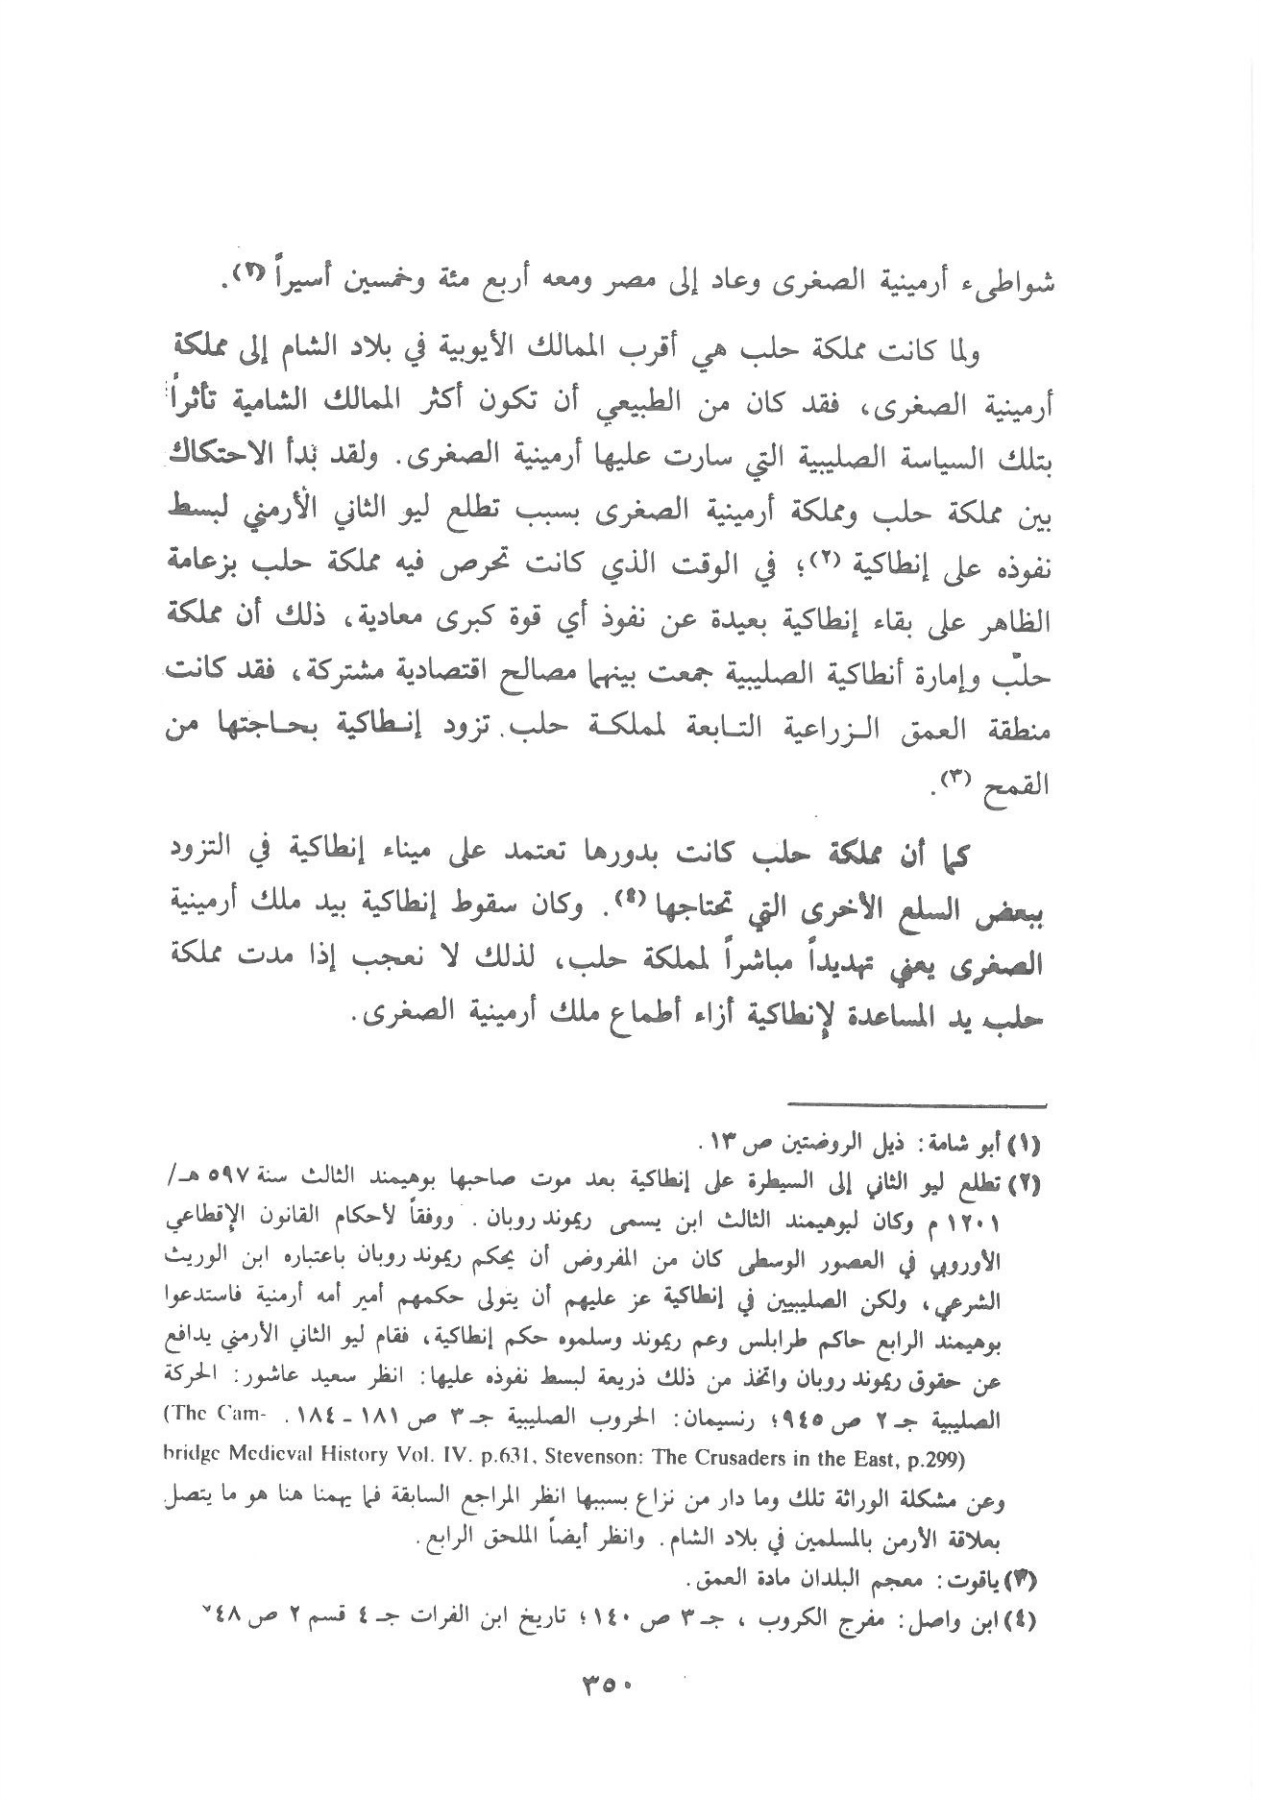 شواطىء أرمينية الصغرى وعاد إلى مصر ومعه أربع مئة وخمسين أسيراً (١).
ولما كانت مملكة حلب هي أقرب الممالك الأيوبية في بلاد الشام إلى مملكة
أرمينية الصغرى، فقد كان من الطبيعي أن تكون أكثر الممالك الشامية تأثراً
بتلك السياسة الصليبية التي سارت عليها أرمينية الصغرى. ولقد بدأ الاحتكاك
بين مملكة حلب ومملكة أرمينية الصغرى بسبب تطلع ليو الثاني الأرمني لبسط
نفوذه على إنطاكية (٢)؛ في الوقت الذي كانت تحرص فيه مملكة حلب بزعامة
الظاهر على بقاء إنطاكية بعيدة عن نفوذ أي قوة كبرى معادية، ذلك أن مملكة
حلب وإمارة أنطاكية الصليبية جمعت بينهما مصالح اقتصادية مشتركة، فقد كانت
منطقة العمق الـزراعية التـابعة لمملكـة حلب تزود إنـطاكية بحـاجتها من
القمح (٣).
كما أن مملكة حلب كانت بدورها تعتمد على ميناء إنطاكية في التزود
ببعض السلع الأخرى التي تحتاجها (٤). وكان سقوط إنطاكية بيد ملك أرمينية
الصغرى يعني تهديداً مباشراً لمملكة حلب، لذلك لا نعجب إذا مدت مملكة
حلب يد المساعدة لإنطاكية أزاء أطماع ملك أرمينية الصغرى.
(١) أبو شامة: ذيل الروضتين ص ١٣.
(٢) تطلع ليو الثاني إلى السيطرة على إنطاكية بعد موت صاحبها بوهيمند الثالث سنة ٥٩٧ هـ/
١٢٠١ م وكان لبوهيمند الثالث ابن يسمى ريموند روبان. ووفقاً لأحكام القانون الإقطاعي
الأوروبي في العصور الوسطى كان من المفروض أن يحكم ريموند روبان باعتباره ابن الوريث
الشرعي، ولكن الصليبيين في إنطاكية عز عليهم أن يتولى حكمهم أمير أمه أرمنية فاستدعوا
بوهيمند الرابع حاكم طرابلس وعم ريموند وسلموه حكم إنطاكية، فقام ليو الثاني الأرمني يدافع
عن حقوق ريموند روبان واتخذ من ذلك ذريعة لبسط نفوذه عليها: انظر سعيد عاشور: الحركة
الصليبية جـ ٢ ص ٩٤٥؛ رنسيمان: الحروب الصليبية جـ ٣ ص ١٨١ - ١٨٤. (The Cam-
bridge Medieval History Vol. IV. p.631, Stevenson: The Crusaders in the East, p.299)
وعن مشكلة الوراثة تلك وما دار من نزاع بسببها انظر المراجع السابقة فما يهمنا هنا هو ما يتصل
بعلاقة الأرمن بالمسلمين في بلاد الشام. وانظر أيضاً الملحق الرابع.
(٣) ياقوت: معجم البلدان مادة العمق.
(٤) ابن واصل: مفرج الكروب، جـ ٣ ص ١٤٠؛ تاريخ ابن الفرات جـ ٤ قسم ٢ ص
٣٥٠